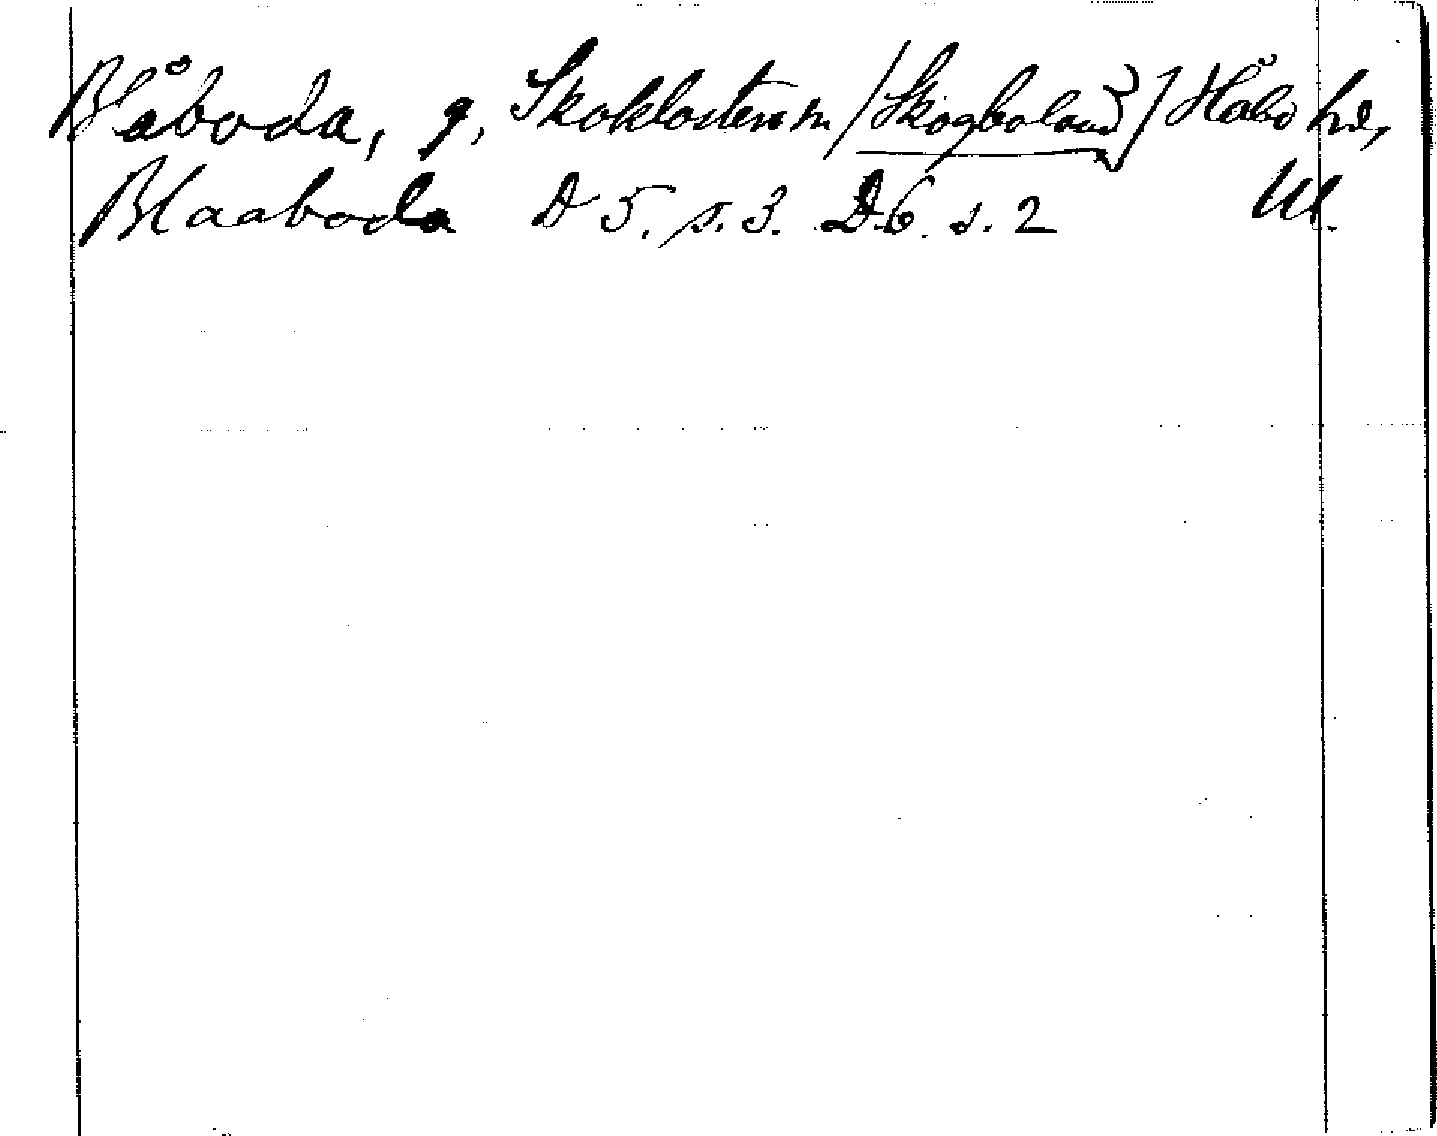 Blåboda, g, Skoklosters sn [Skogboland] Håbo hd,
Blaaboda D 5. s. 3. D.6. s. 2 Ul.